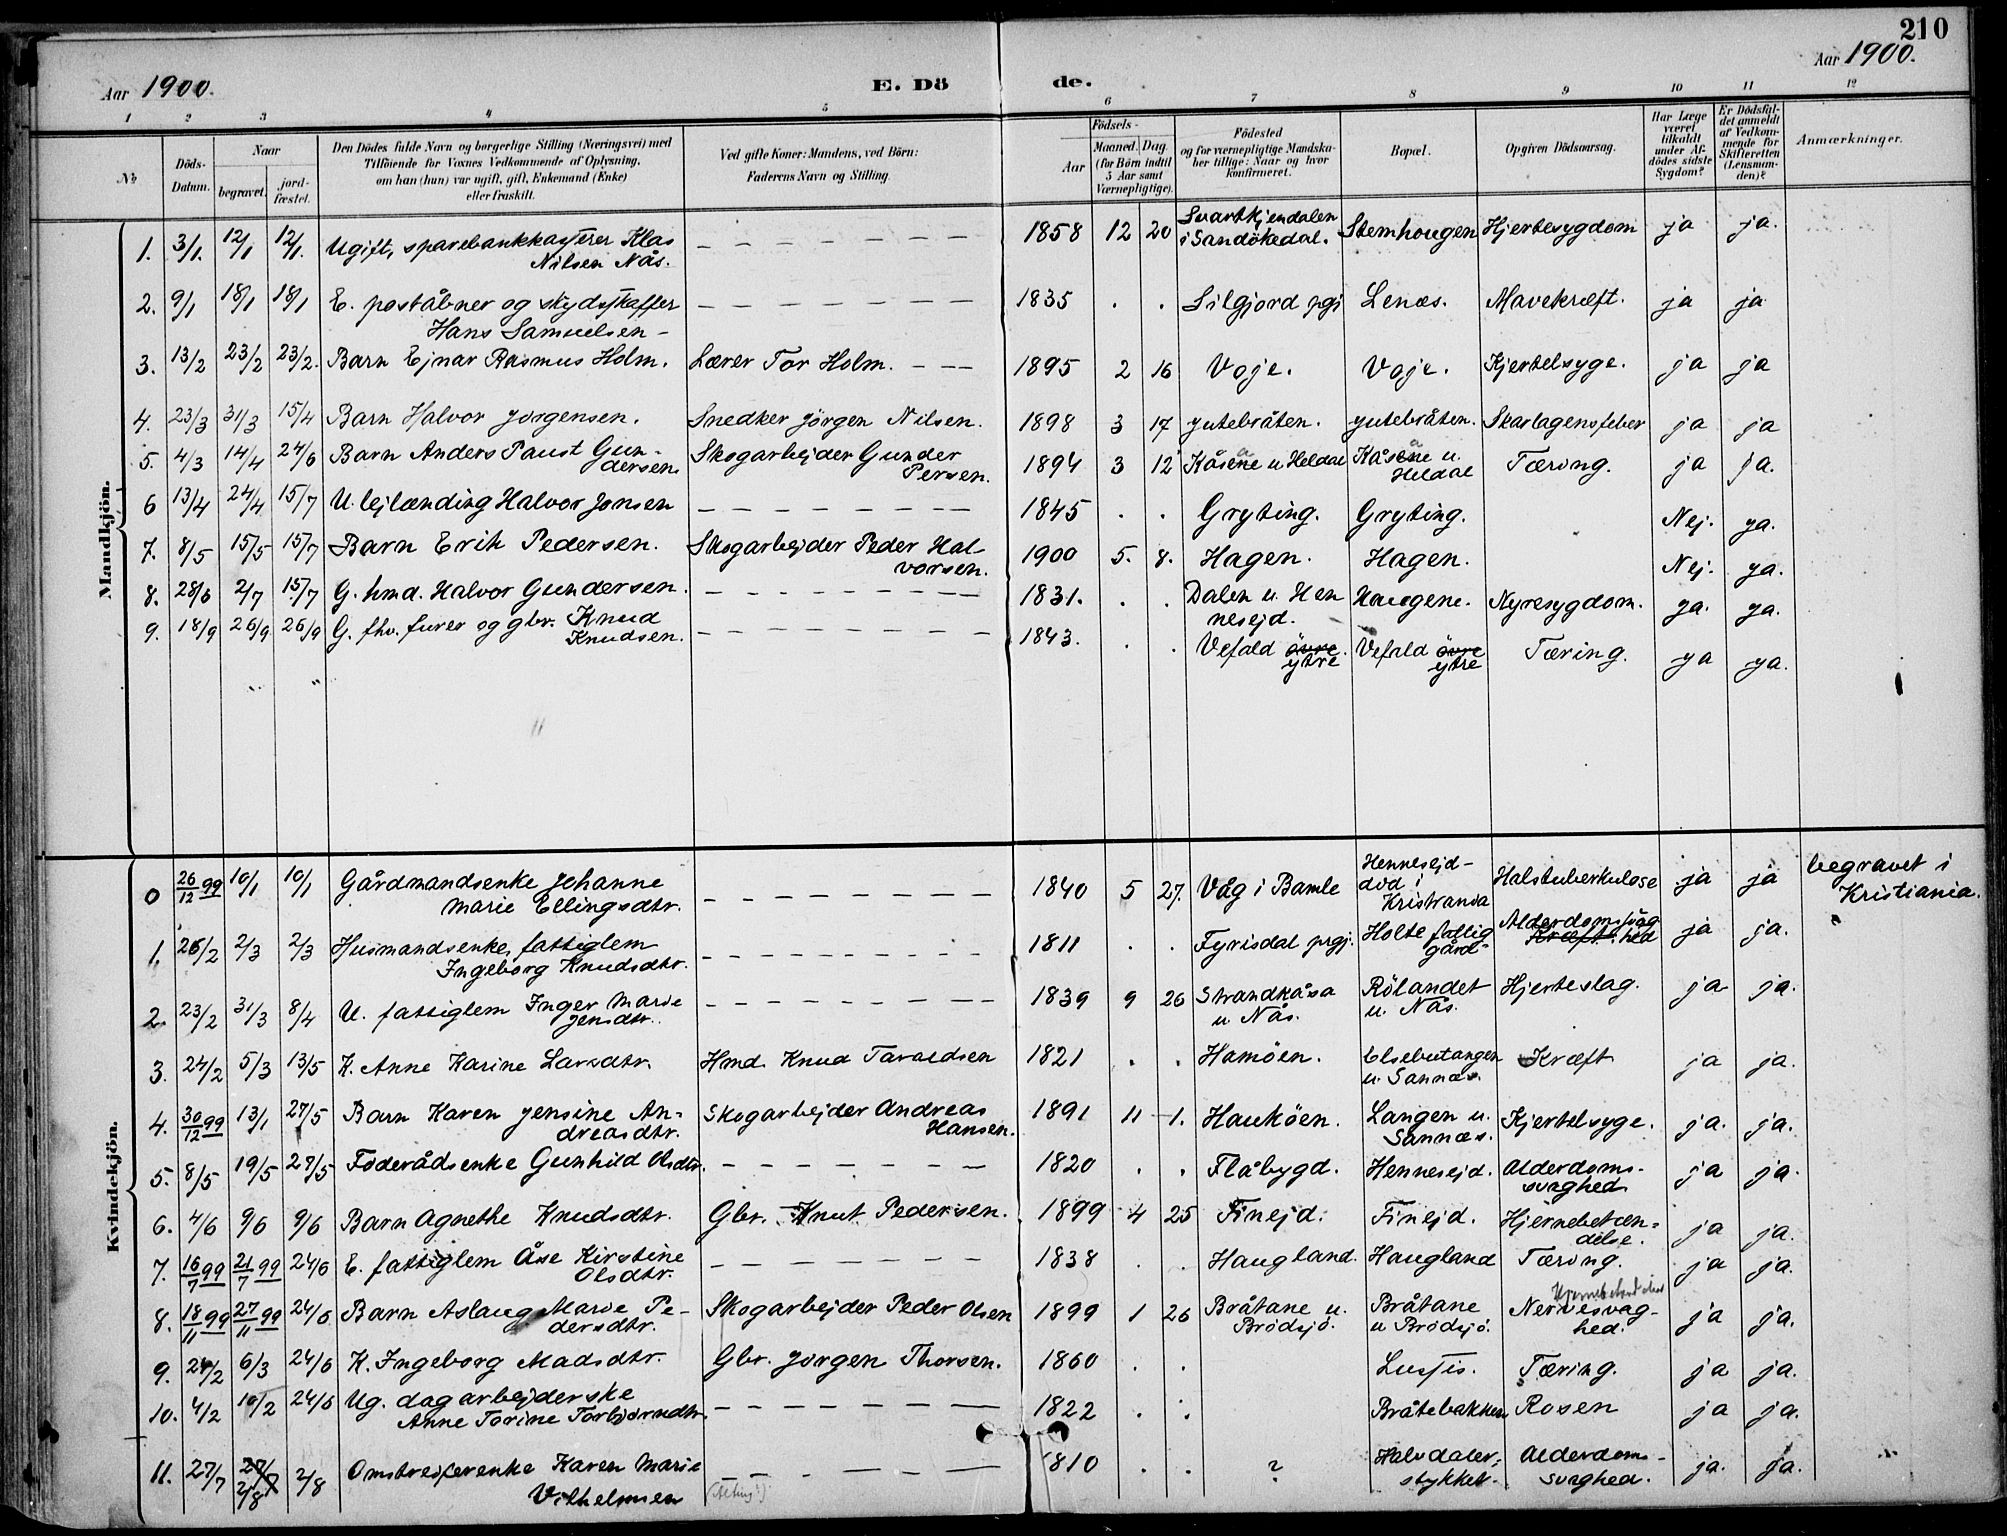 210
Aar 1900.
E. Dö de.
Aar 1900.
1 2 3 4 5 6 7 8 9 10 11 12
No
Döds-Datum.
Naar
begravet.
jord-fæstet.
Den Dödes fulde Navn og borgerlige Stilling (Næringsvei) med
Tilföiende for Voxnes Vedkommende af Oplysning,
om han (hun) var ugift, gift, Enkemand (Enke)
eller fraskilt.
Ved gifte Koner: Mandens, ved Börn:
Faderens Navn og Stilling.
Födsels-
Aar
Maaned. Dag.
(for Börn indtil
5 Aar samt
Værnepligtige).
Födested
og for værnepligtige Mandska-
ber tillige: Naar og hvor
konfirmeret.
Bopæl.
Opgiven Dödsaarsag.
Har Læge
været
tilkaldt
under Af-
dödes sidste
Sygdom?
Er Dödsfal-
det anmeldt
af Vedkom-
mende for
Skifteretten
(Lensman-
den)?
Anmærkninger.
Mandkjön.
1. 3/1. 12/1 12/1. Ugift, sparebankkasserer Klas
Nilsen Nås. 1858 12 20 Svartkjendalen
i Sandökedal. Stemhougen Hjertesygdom ja ja.
2. 9/1 18/1 18/1 E. poståbner og skydsskaffer
Hans Samuelsen 1835 . . Silgjord pgj Lenæs. Mavekræft. ja ja
3. 13/2 23/2 23/2. Barn Ejnar Rasmus Holm. Lærer Tor Holm. 1895 2 16 Voje. Voje. Kjertelsyge. ja ja
4. 23/3 31/3 15/4 Barn Halvor Jørgensen. Snedker Jörgen Nilsen. 1898 3 17 Jutebråten. Jutebråten. Skarlagensfeber ja ja
5. 4/3 14/4 24/6 Barn Anders Paust Gun-
dersen Skogarbejder Gunder
Persen. 1894 3 12 Kåsene u. Heldal Kåsene u.
Heldal Tæring. ja ja.
6 13/4 24/4 15/7 U. lejlænding Halvor Jonsen 1845 . . Gryting. Gryting. Nej. ja.
7. 8/5 15/5 15/7 Barn Erik Pedersen. Skogarbejder Peder Hal-
vorsen. 1900 5. 8. Hagen. Hagen. Nej. ja.
8. 28/6 2/7 15/7 G. hmd. Halvor Gundersen. 1831. . . Dalen u. Hen
nesejd. Haugene. Nyresygdom. ja. ja.
9. 18/9 26/9 26/9 G. fhv. furer og gbr. Knud
Knudsen. 1843. . . Vefald övre
ytre Vefald övre
ytre Tæring. ja ja.
Kvindekjön.
0 26/12 99 10/1 10/1 Gårdmandsenke Johanne
Marie Ellingsdtr. 1840 5 27. Våg i Bamle Hennesejd-
död i
Kristiania Halstuberkulose ja ja begravet i
Kristiania.
1. 26/2 2/3 2/3 Husmandsenke, fattiglem
Ingeborg Knudsdtr. 1811 . . Fyrisdal prgj. Holte fattig
gård Alderdomssvag
Kræft hed ja ja.
2. 23/2 31/3 8/4 U. fattiglem Inger Marie
Jensdtr. 1839 9 26 Strandkåsa
u. Nås. Rölandet
u. Nås. Hjerteslag. ja ja.
3. 24/2 5/3 13/5 K. Anne Karine Larsdtr. Hmd. Knud Taraldsen 1821 . . Hamöen. Elsebutangen
u. Sannæs. Kræft ja ja.
4. 30/12 99 13/1 27/5 Barn Karen Jensine An-
dreasdtr. Skogarbejder Andreas
Hansen. 1891 11 1. Hauköen. Langen u.
Sannæs. Kjertelsyge. ja. ja.
5. 8/5 19/5 27/5 Føderådsenke Gunhild Olsdtr. 1820 . . Flåbygd. Hennesejd. Alderdoms-
svaghed ja ja.
6. 4/6 9/6 9/6 Barn Agnethe Knudsdtr. Gbr. Knut Pedersen. 1899 4 25 Finejd. Finejd. Hjernebetæn-
delse. ja ja.
7. 16/7 99 21/7 99 24/6 E. fattiglem Åse Kirstine
Olsdtr. 1838 . . Haugland. Haugland Tæring. ja ja.
8. 18/11 99 27/11 99 24/6 Barn Aslaug Marie Pe-
dersdtr. Skogarbejder Peder Olsen 1899 1 26 Bråtane u.
Brödsjö. Bråtane
u Brödsjö. Nervesvag-
hed. ja ja.
9. 24/2 6/3 24/6 K. Ingeborg Madsdtr. Gbr. Jørgen Thorsen. 1860 . . Lussjis. Tæring. ja ja.
10. 4/2 10/2 24/6 Ug. dagarbejderske
Anne Torine Torbjörndtr. 1822 . . Bråtebakken Rosen ja ja.
11. 27/7 27/7
2/8 2/8 Omstreiferenke Karen Marie
Vilhelmsen 1810 . . ? Halvdaler,
stykket. Alderdoms-
svaghed. ja. ja.